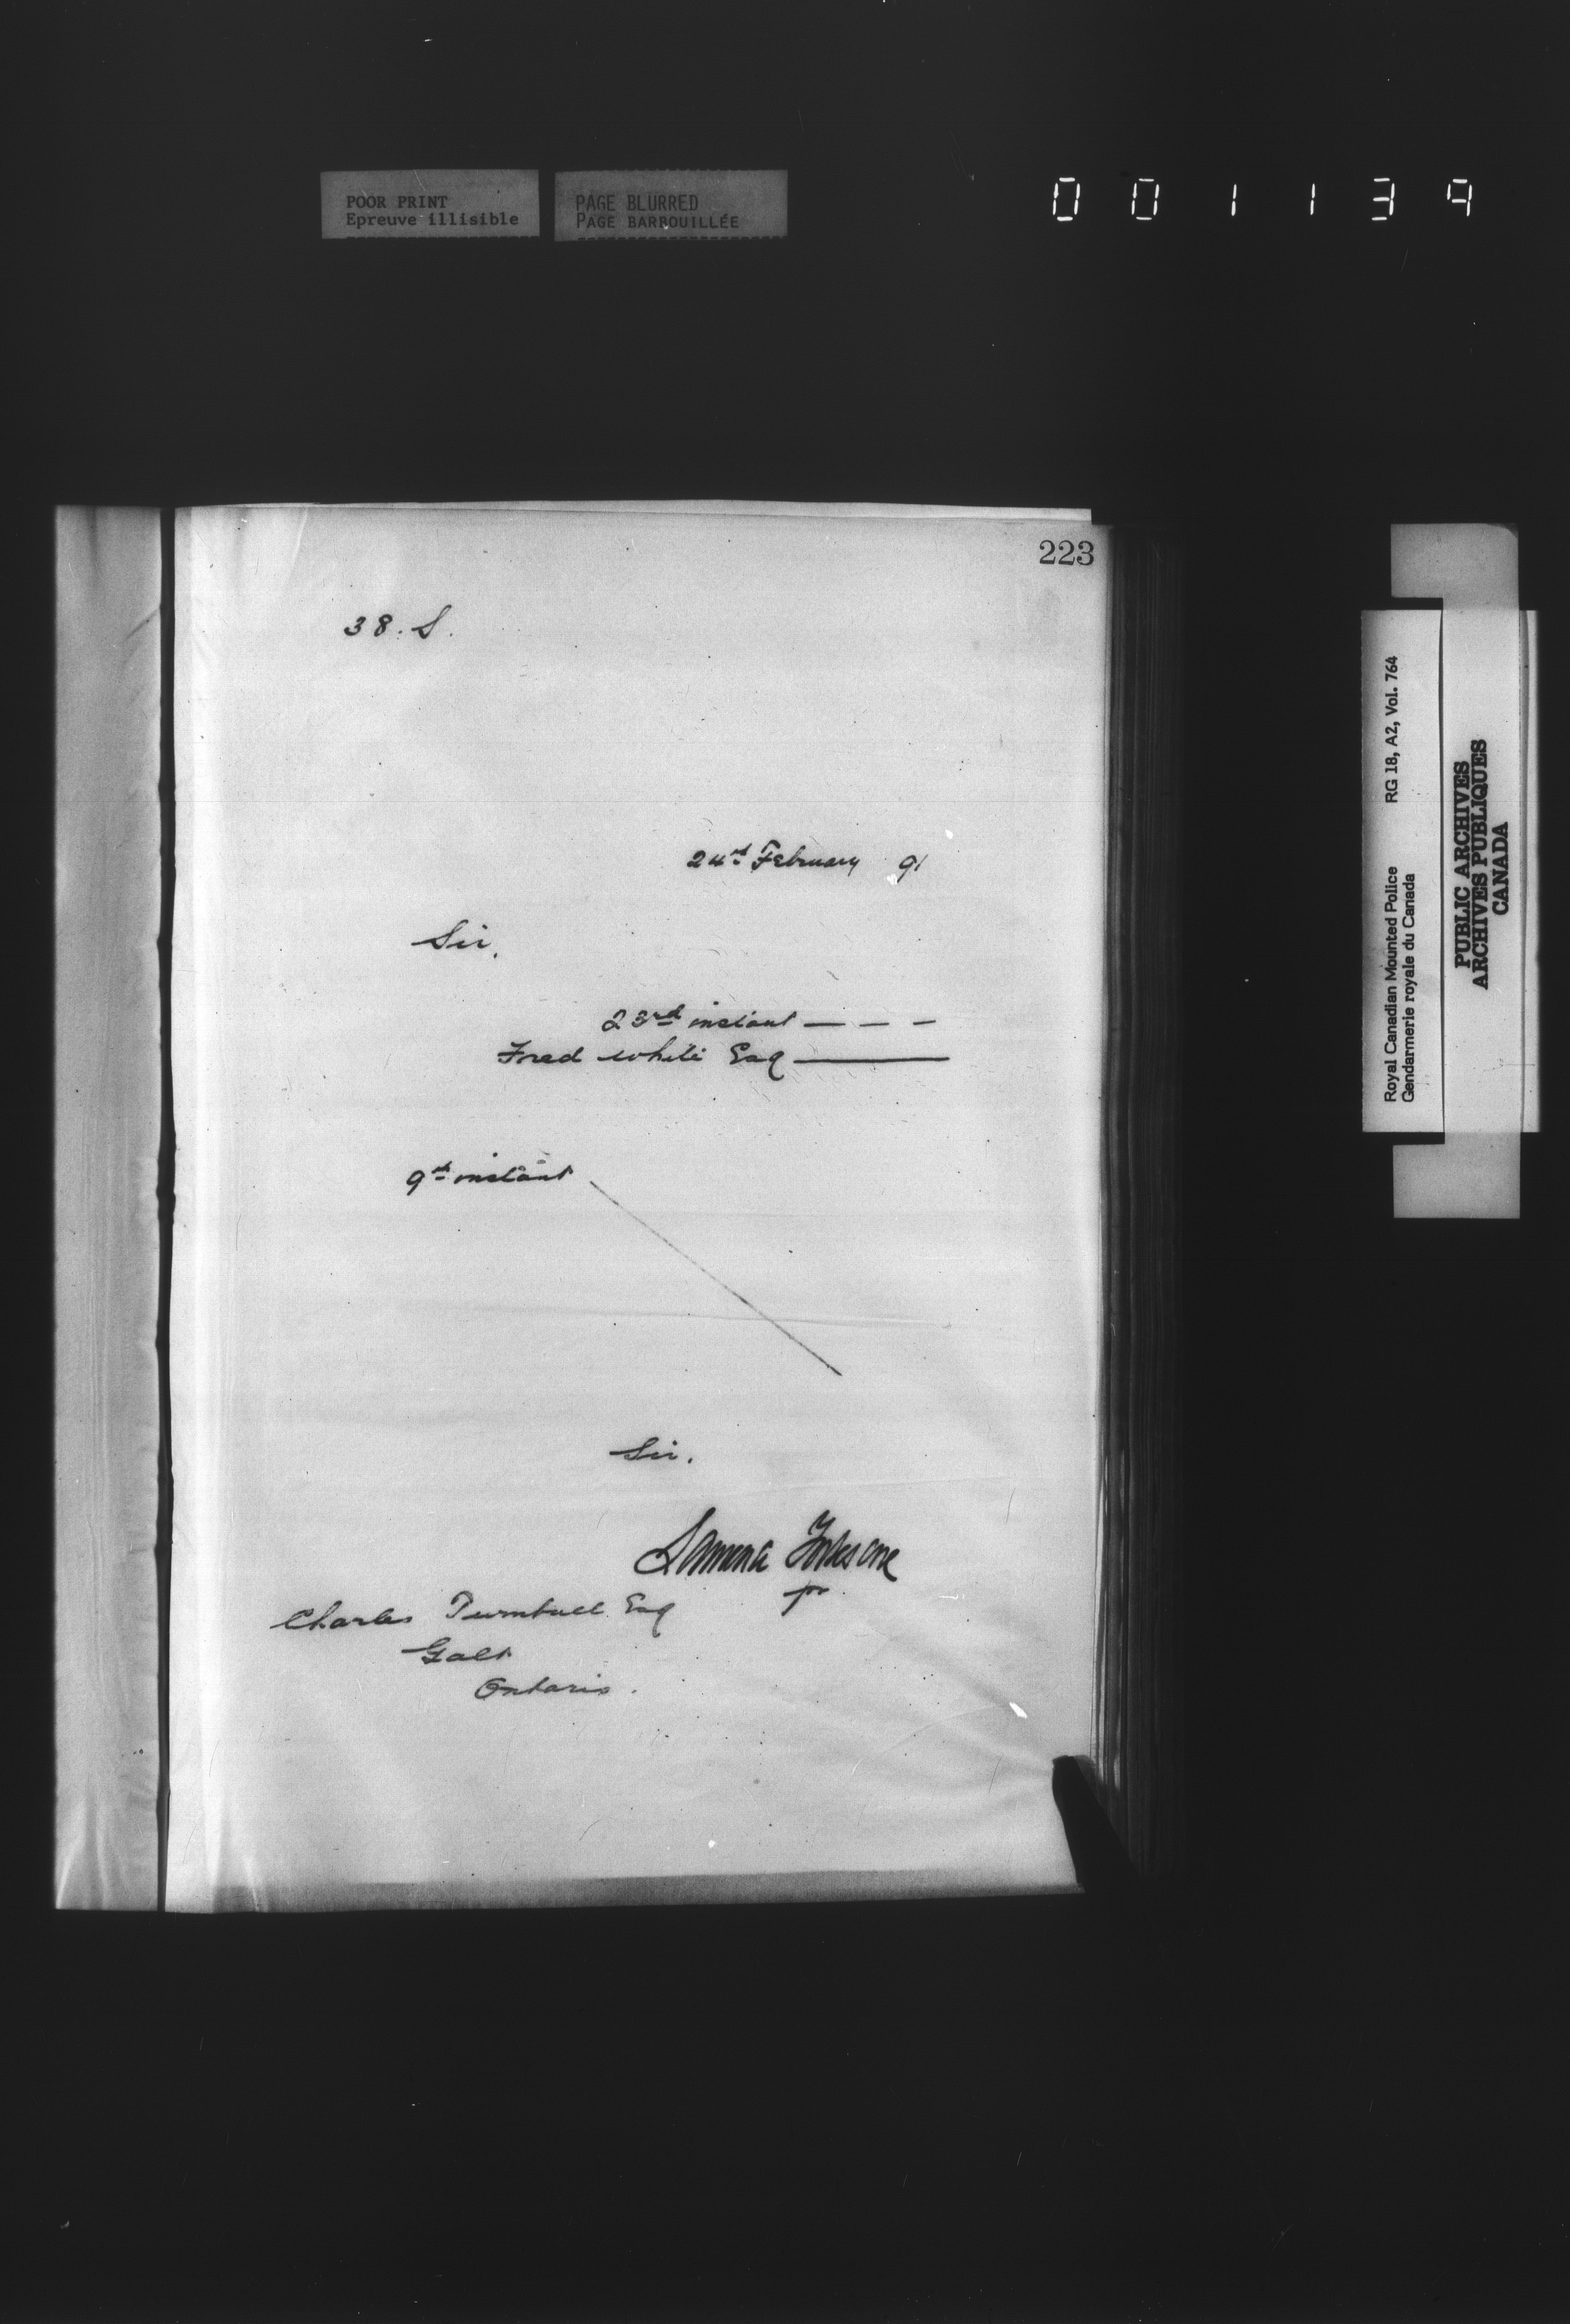 POOR PRINT
Epreuve illisible
PAGE BLURRED
PAGE BARBOUILLÉE
001139
223
38. S.
24th February 91
Sir,
23rd instant — — —
Fred White Esq ———
9th instant
Sir.
pr
Charles Turnbull Esq
Galt
Ontario.
Royal Canadian Mounted Police RG 18, A2, Vol. 764
Gendarmerie royale du Canada
PUBLIC ARCHIVES
ARCHIVES PUBLIQUES
CANADA